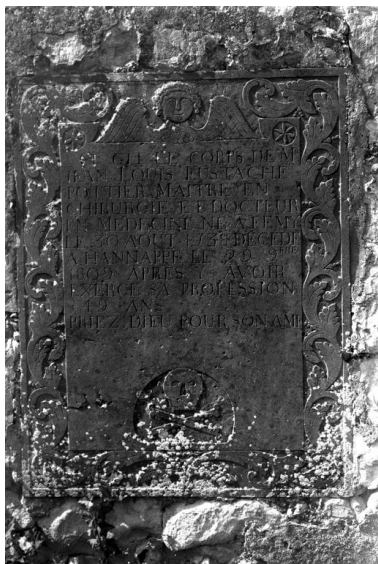 CI GIT LE CORPS DE M
JEAN LOUIS EUSTACHE
POTTIER MAITRE EN
CHIRURGIE ET DOCTEUR
EN MEDECINE NE A
LE 30 AOUT 1738 DECEDE
A HANNAPPE LE 29 9
1809 APRES Y AVOIR
EXERCE SA PROFESSION
49 ANS
PRIEZ DIEU POUR SON AME